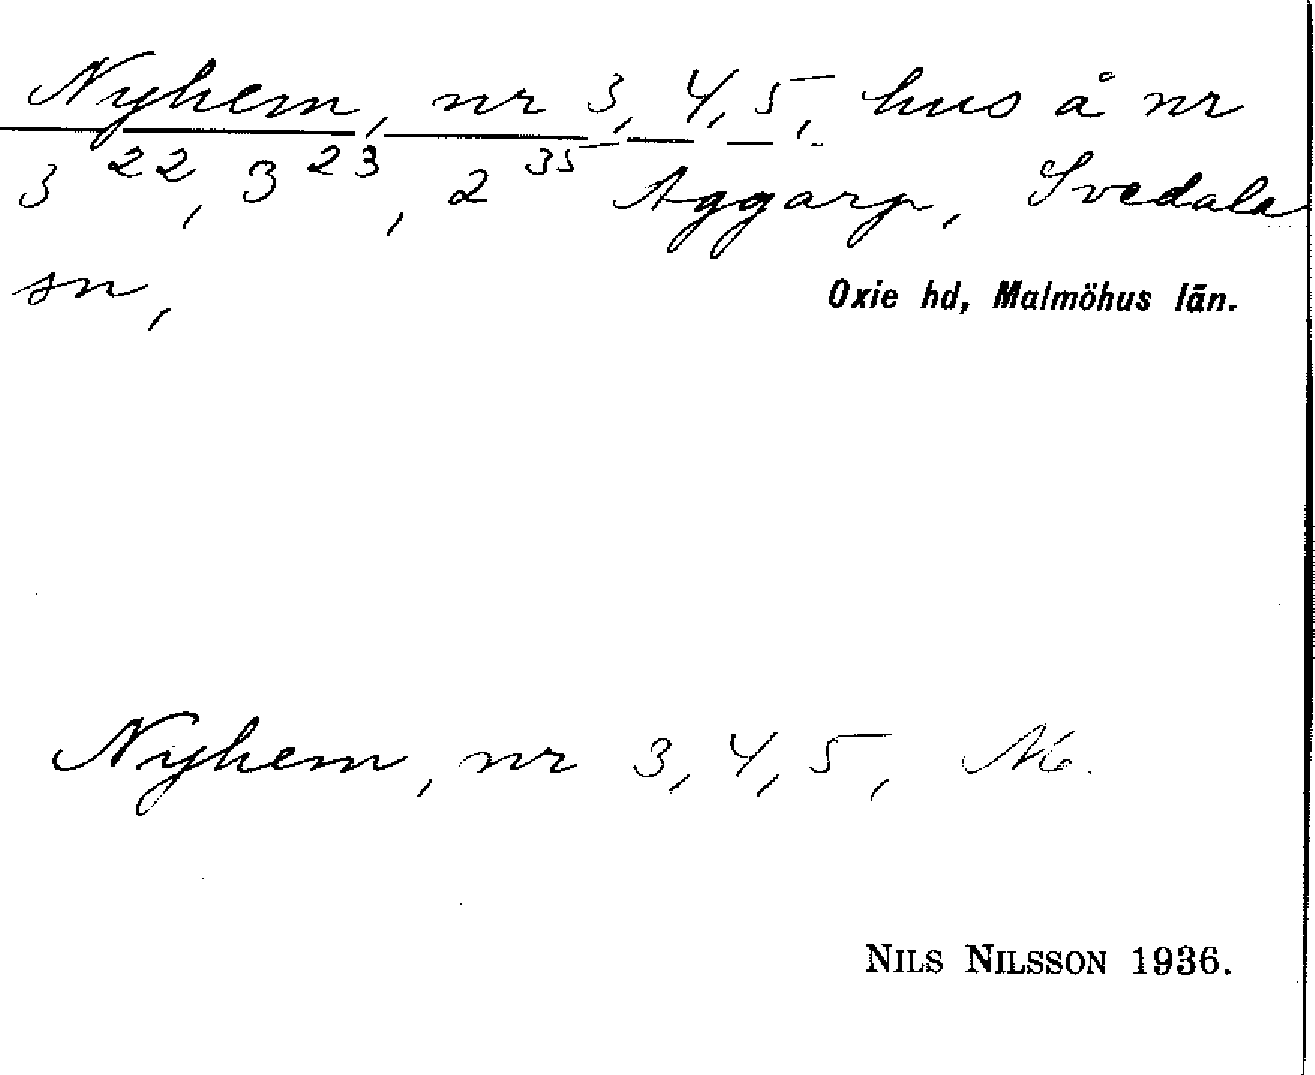 Nyhem, nr 3, 4, 5, hus å nr
3²², 3²³, 2³⁵ Aggarp, Svedala
sn,
Oxie hd, Malmöhus län.
Nyhem, nr 3, 4, 5, M.
NILS NILSSON 1936.